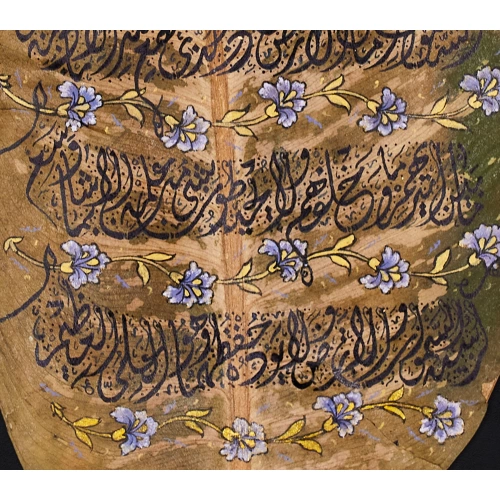 السموات وما في الارض من ذا الذي يشفع عنده الا باذنه
ما بين ايديهم وما خلفهم ولا يحيطون بشيء من علمه الا بما شاء وسع
كرسيه السموات والارض ولا يوده حفظهما وهو العلي العظيم